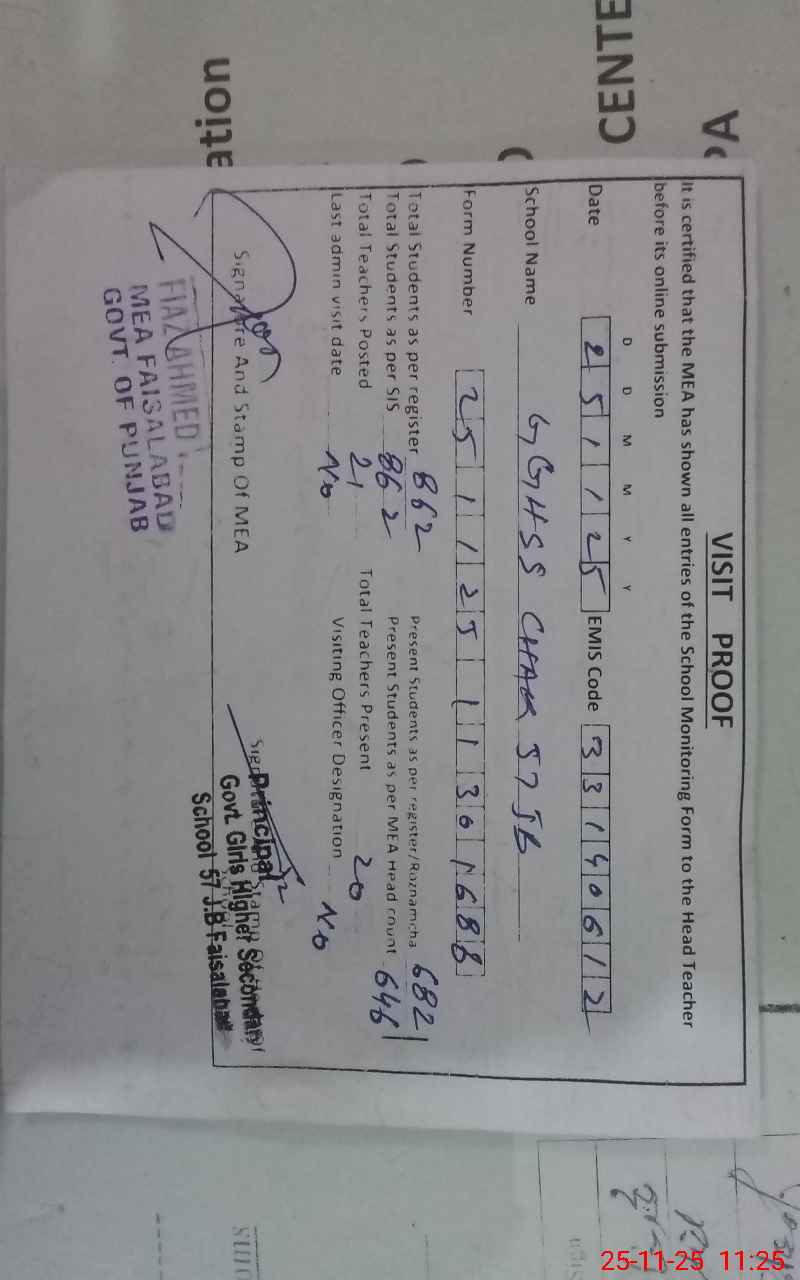 VISIT PROOF
It is certified that the MEA has shown all entries of the School Monitoring Form to the Head Teacher
before its online submission
D D M M Y Y
Date 25 11 25 EMIS Code 33140612
School Name GGHSS CHAK 57 JB
Form Number 25112511301688
Total Students as per register 862 Present Students as per register/Roznamcha 682
Total Students as per SIS 862 Present Students as per MEA Head count 646
Total Teachers Posted 21 Total Teachers Present 20
Last admin visit date No Visiting Officer Designation No
Signature And Stamp Of MEA
FIAZ AHMED
MEA FAISALABAD
GOVT. OF PUNJAB
Principal
Govt. Girls Higher Secondary
School 57 J.B Faisalabad
CENTE
ation
25-11-25 11:25